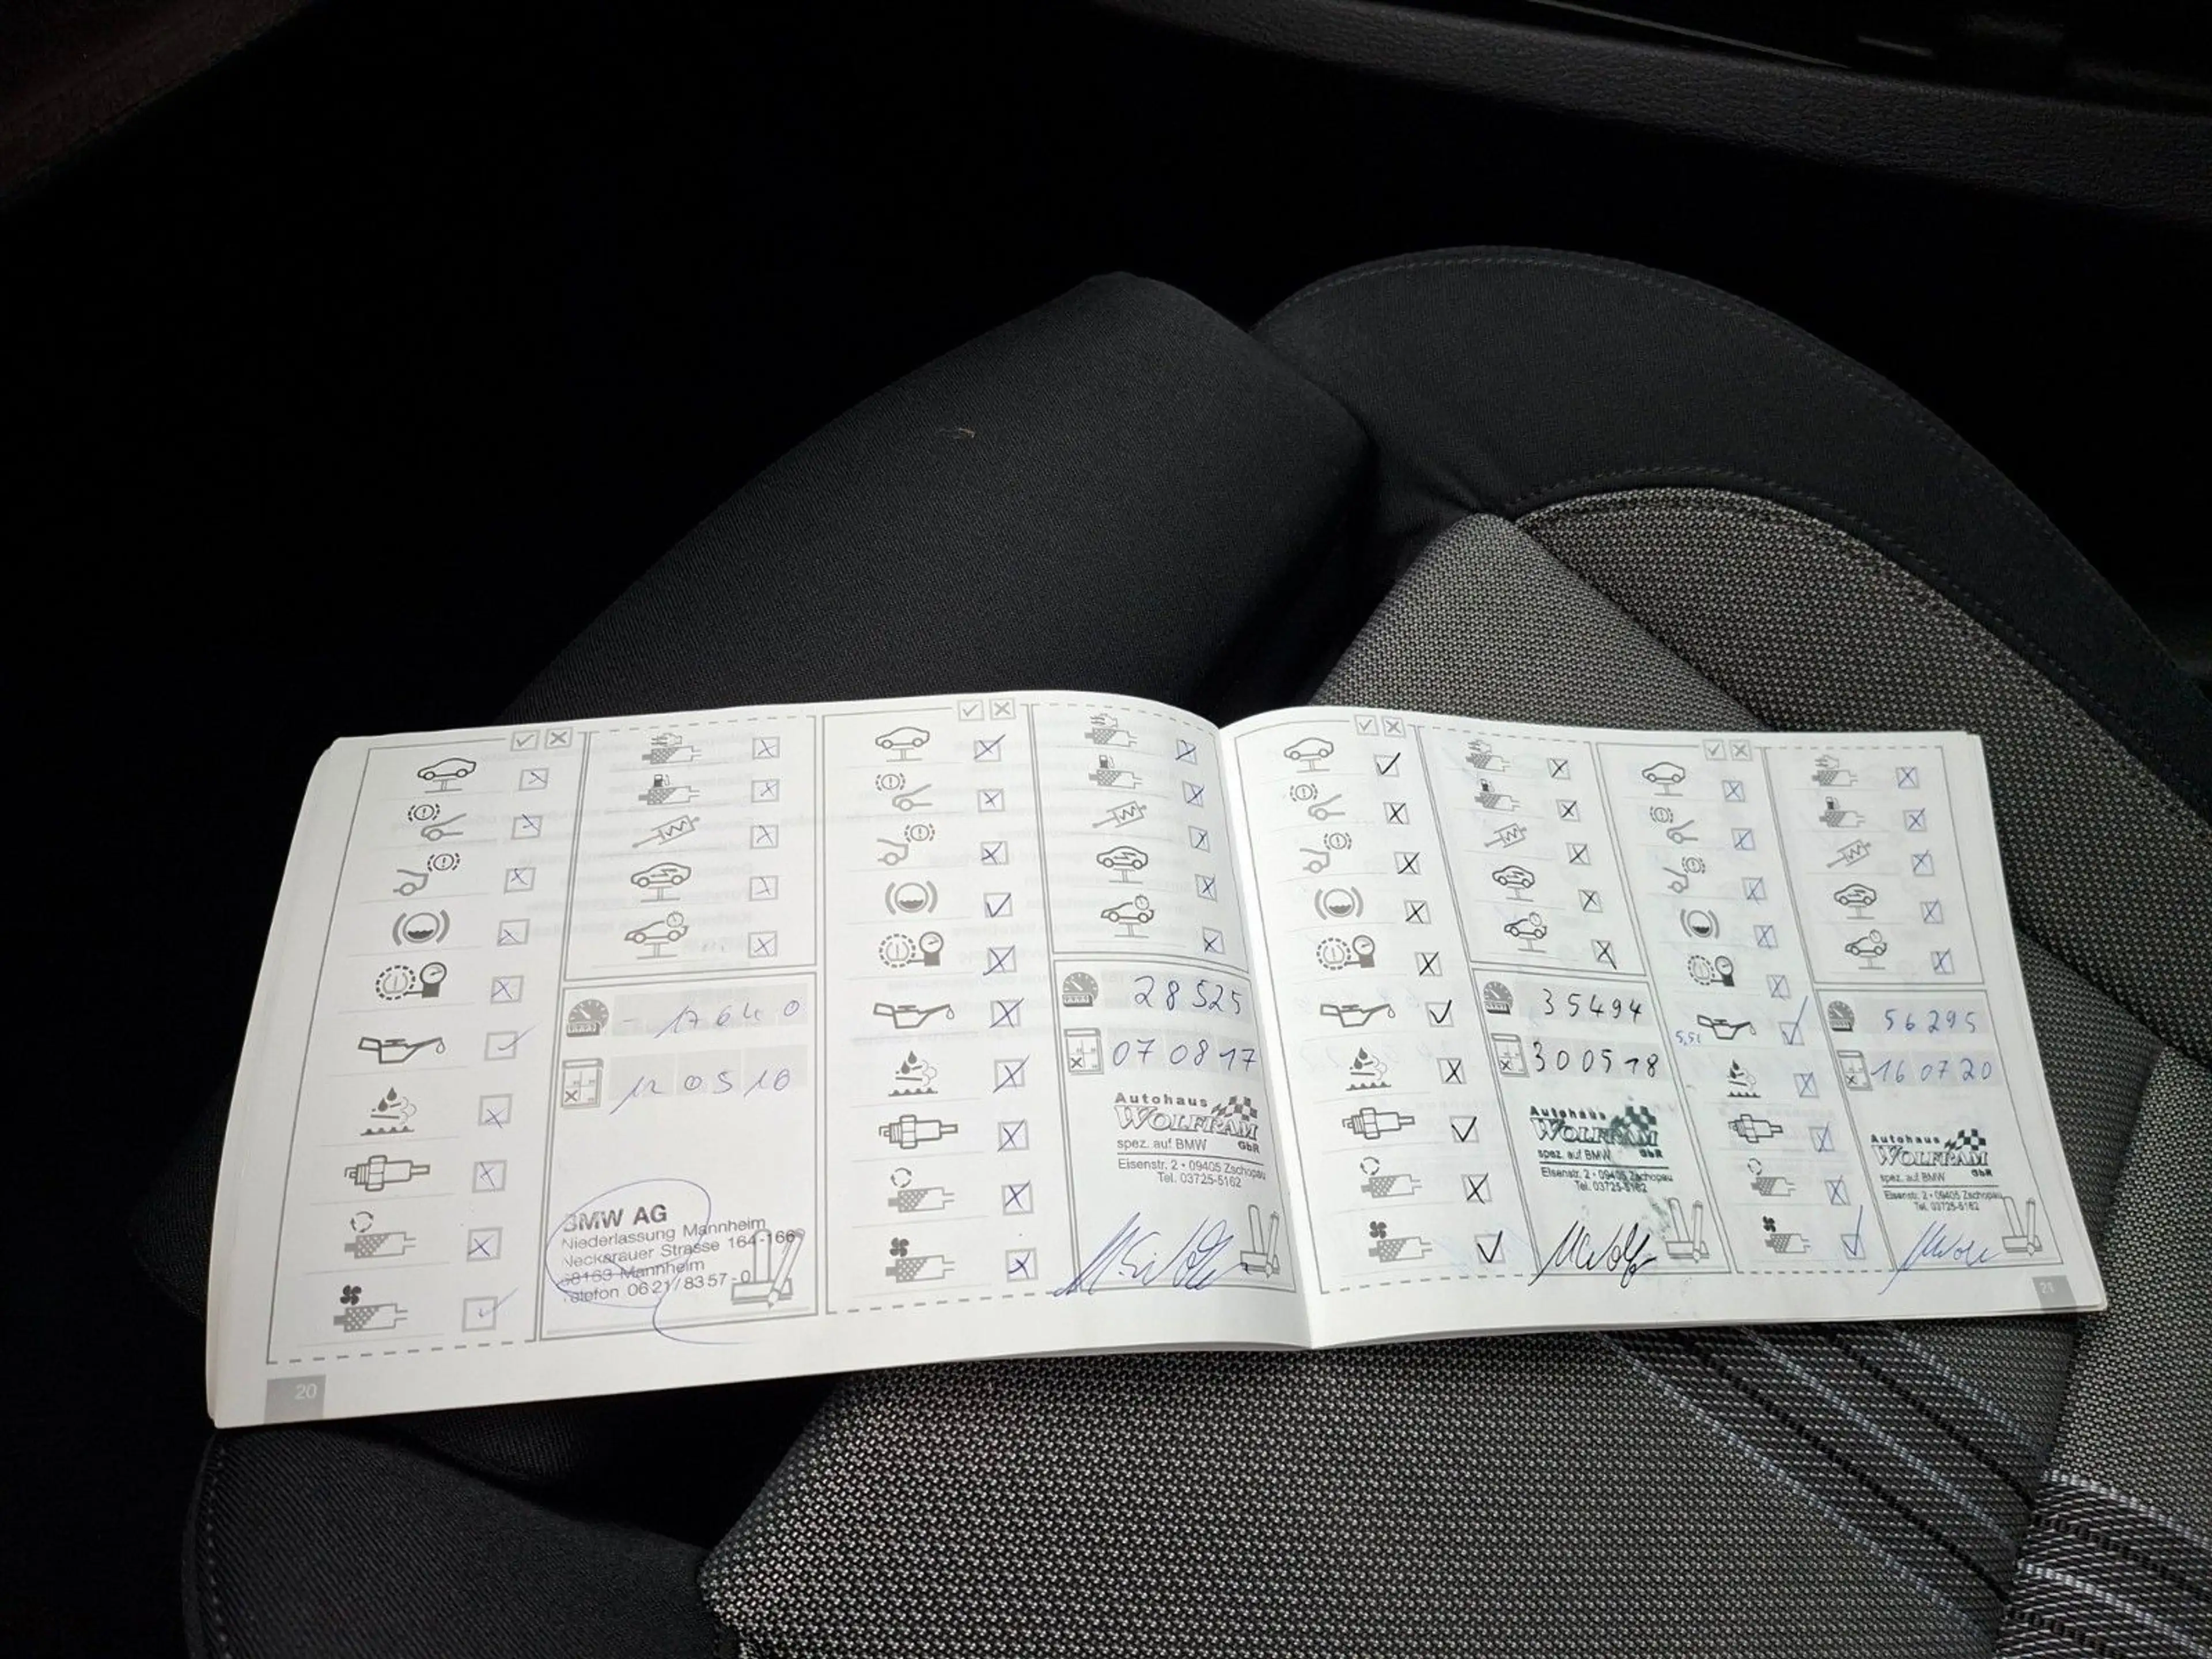 - 17640
12 05 16
BMW AG
Niederlassung Mannheim
Neckarauer Strasse 164-166
68163 Mannheim
Telefon 0621/8357-0
20
28525
07 08 17
Autohaus
WOLFRAM
GbR
spez. auf BMW
Eisenstr. 2 • 09405 Zschopau
Tel. 03725-5162
35494
30 05 18
Autohaus
WOLFRAM
GbR
spez. auf BMW
Eisenstr. 2 • 09405 Zschopau
Tel. 03725-5162
5,5l
56295
16 07 20
Autohaus
WOLFRAM
GbR
spez. auf BMW
Eisenstr. 2 • 09405 Zschopau
Tel. 03725-5162
21